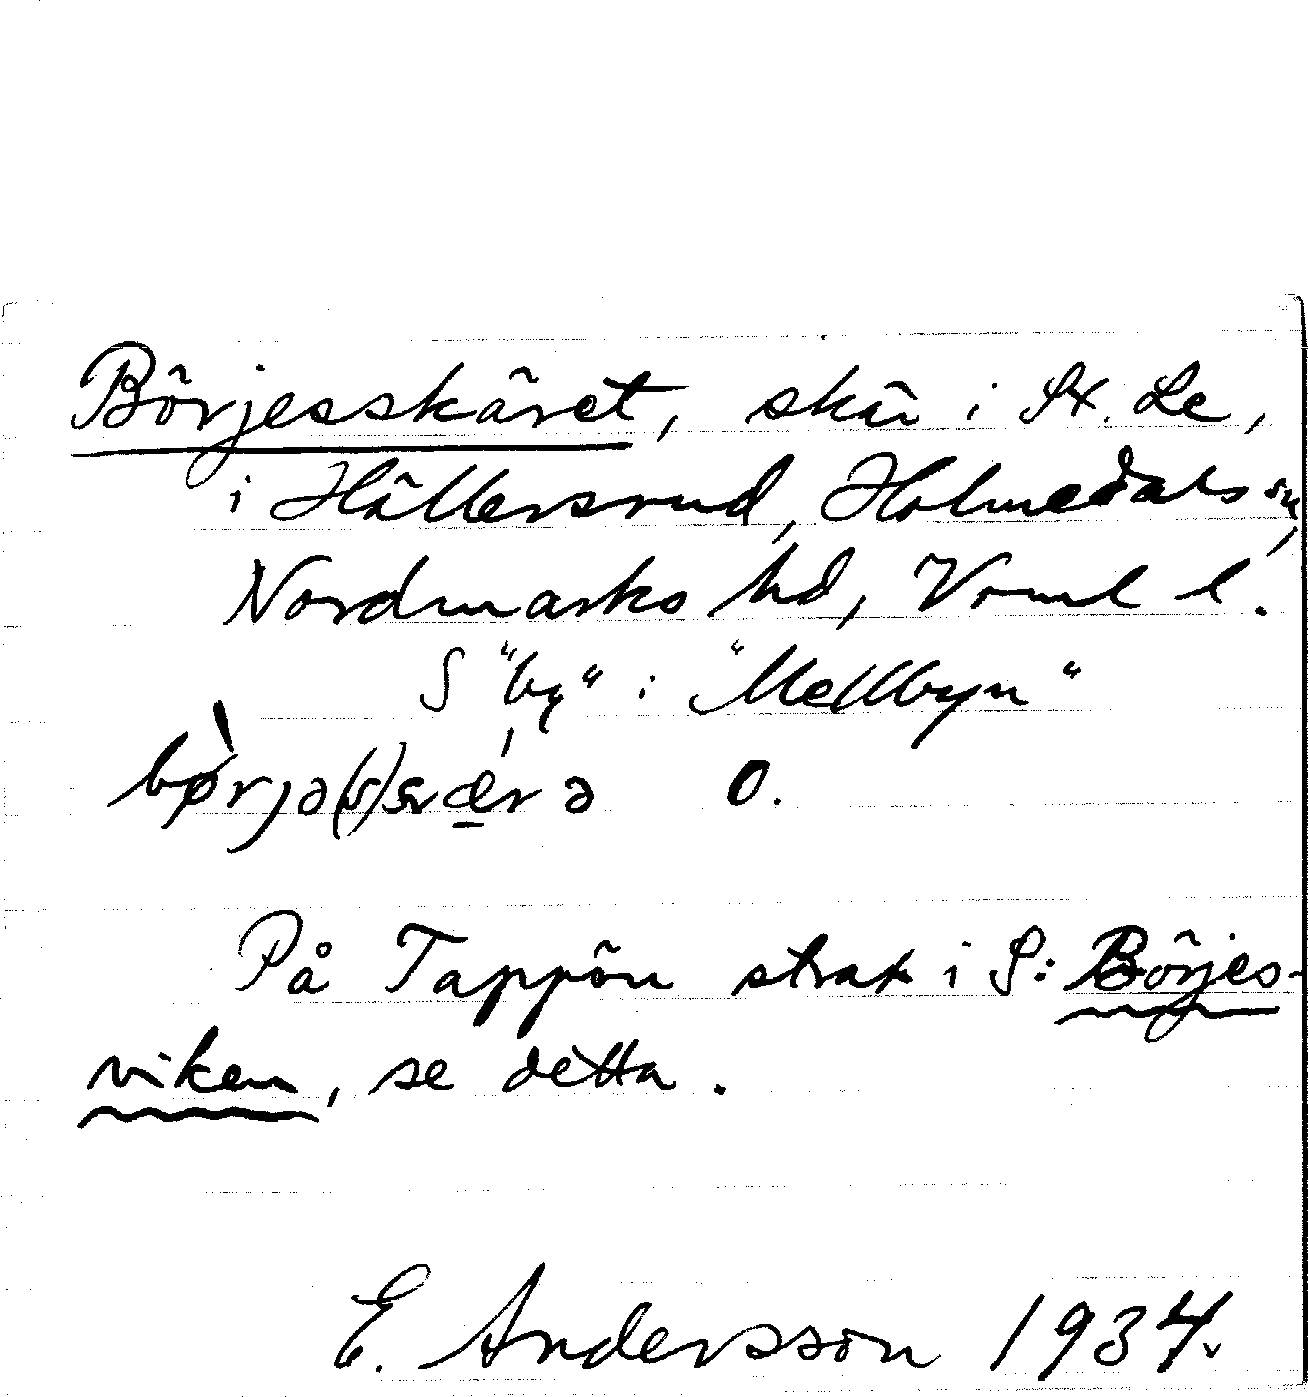 Börjesskäret, skär i St. Le,
i Hällersrud, Holmedals sn,
Nordmarks hd, Vrml l.
S "by" i "Mellbyn"
børjə(s)sʀærə O.
På Tappön strax i S: Börjes-
viken, se detta.
E. Andersson 1934.